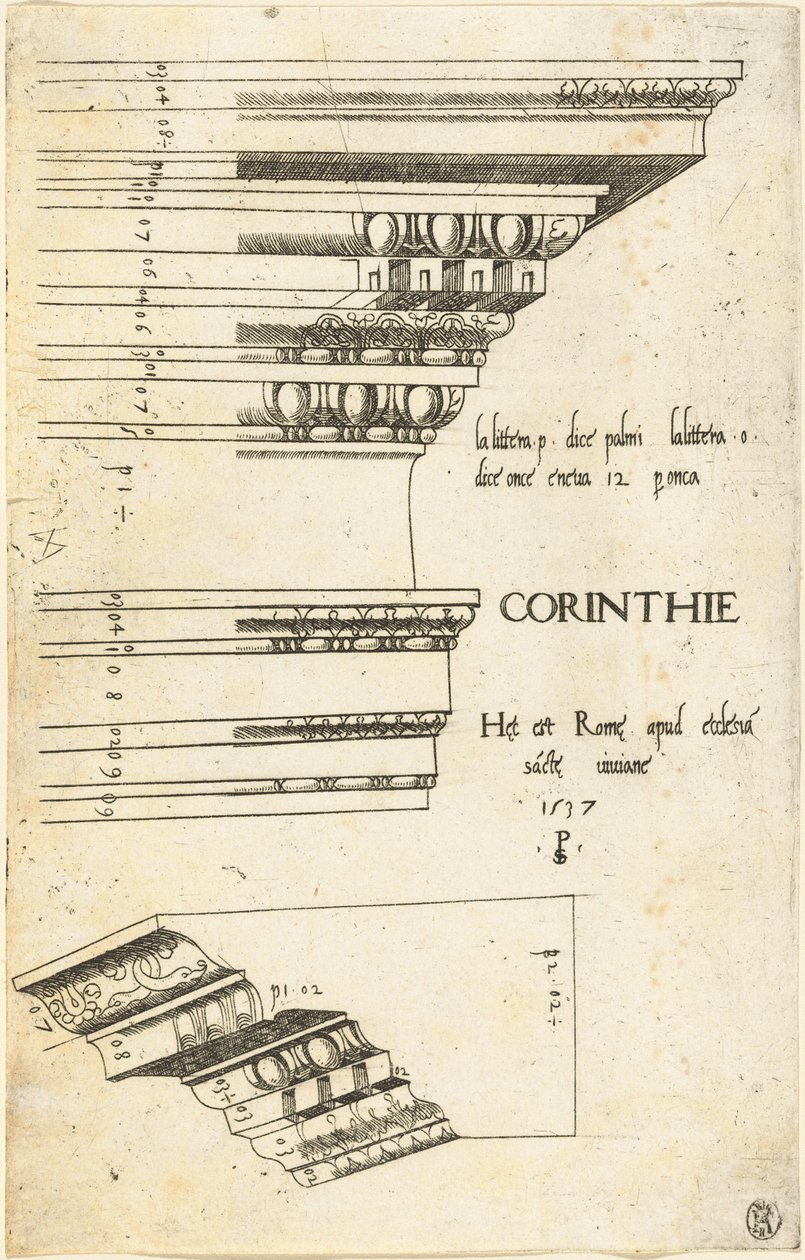 03
04
08÷
p1
01
01
07
06
04
06
3
01
07
5
la littera · p · dice palmi la littera · o ·
dice once eneua 12 p onca
p1÷
CORINTHIE
03
04
1
08
02
09
09
Hęc est Romę apud ecclesiā
sāctę uiuiane
1537
·PS·
p2·02÷
p1·02
07
08
03÷
03
02
03
02